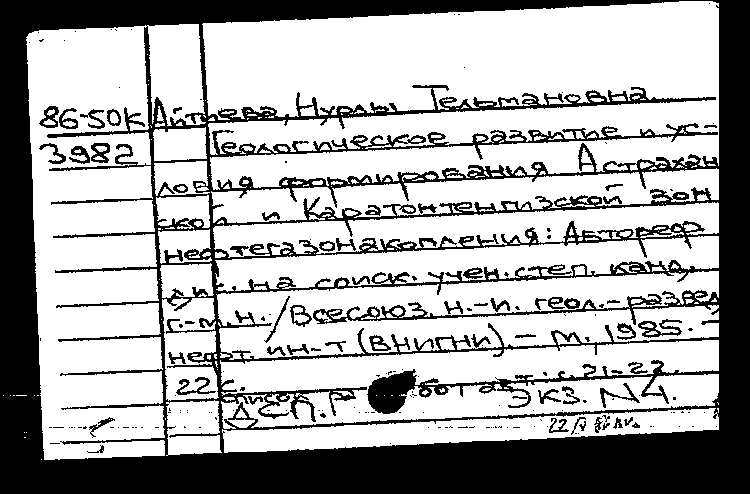 86-50К Айтиева, Нурлы Тельмановна.
3982 Геологическое развитие и ус-
ловия формирования Астрахан
ской и Каратонтенгизской зон
нефтегазонакопления: Автореф.
дис. на соиск. учен. степ. канд.
г.-м.н. / Всесоюз. н.-и. геол.-развед
нефт. ин-т (ВНИГНИ). – М., 1985. –
22 с.
Список работ авт.: с. 21-22.
ДСП. Экз. N4.
22